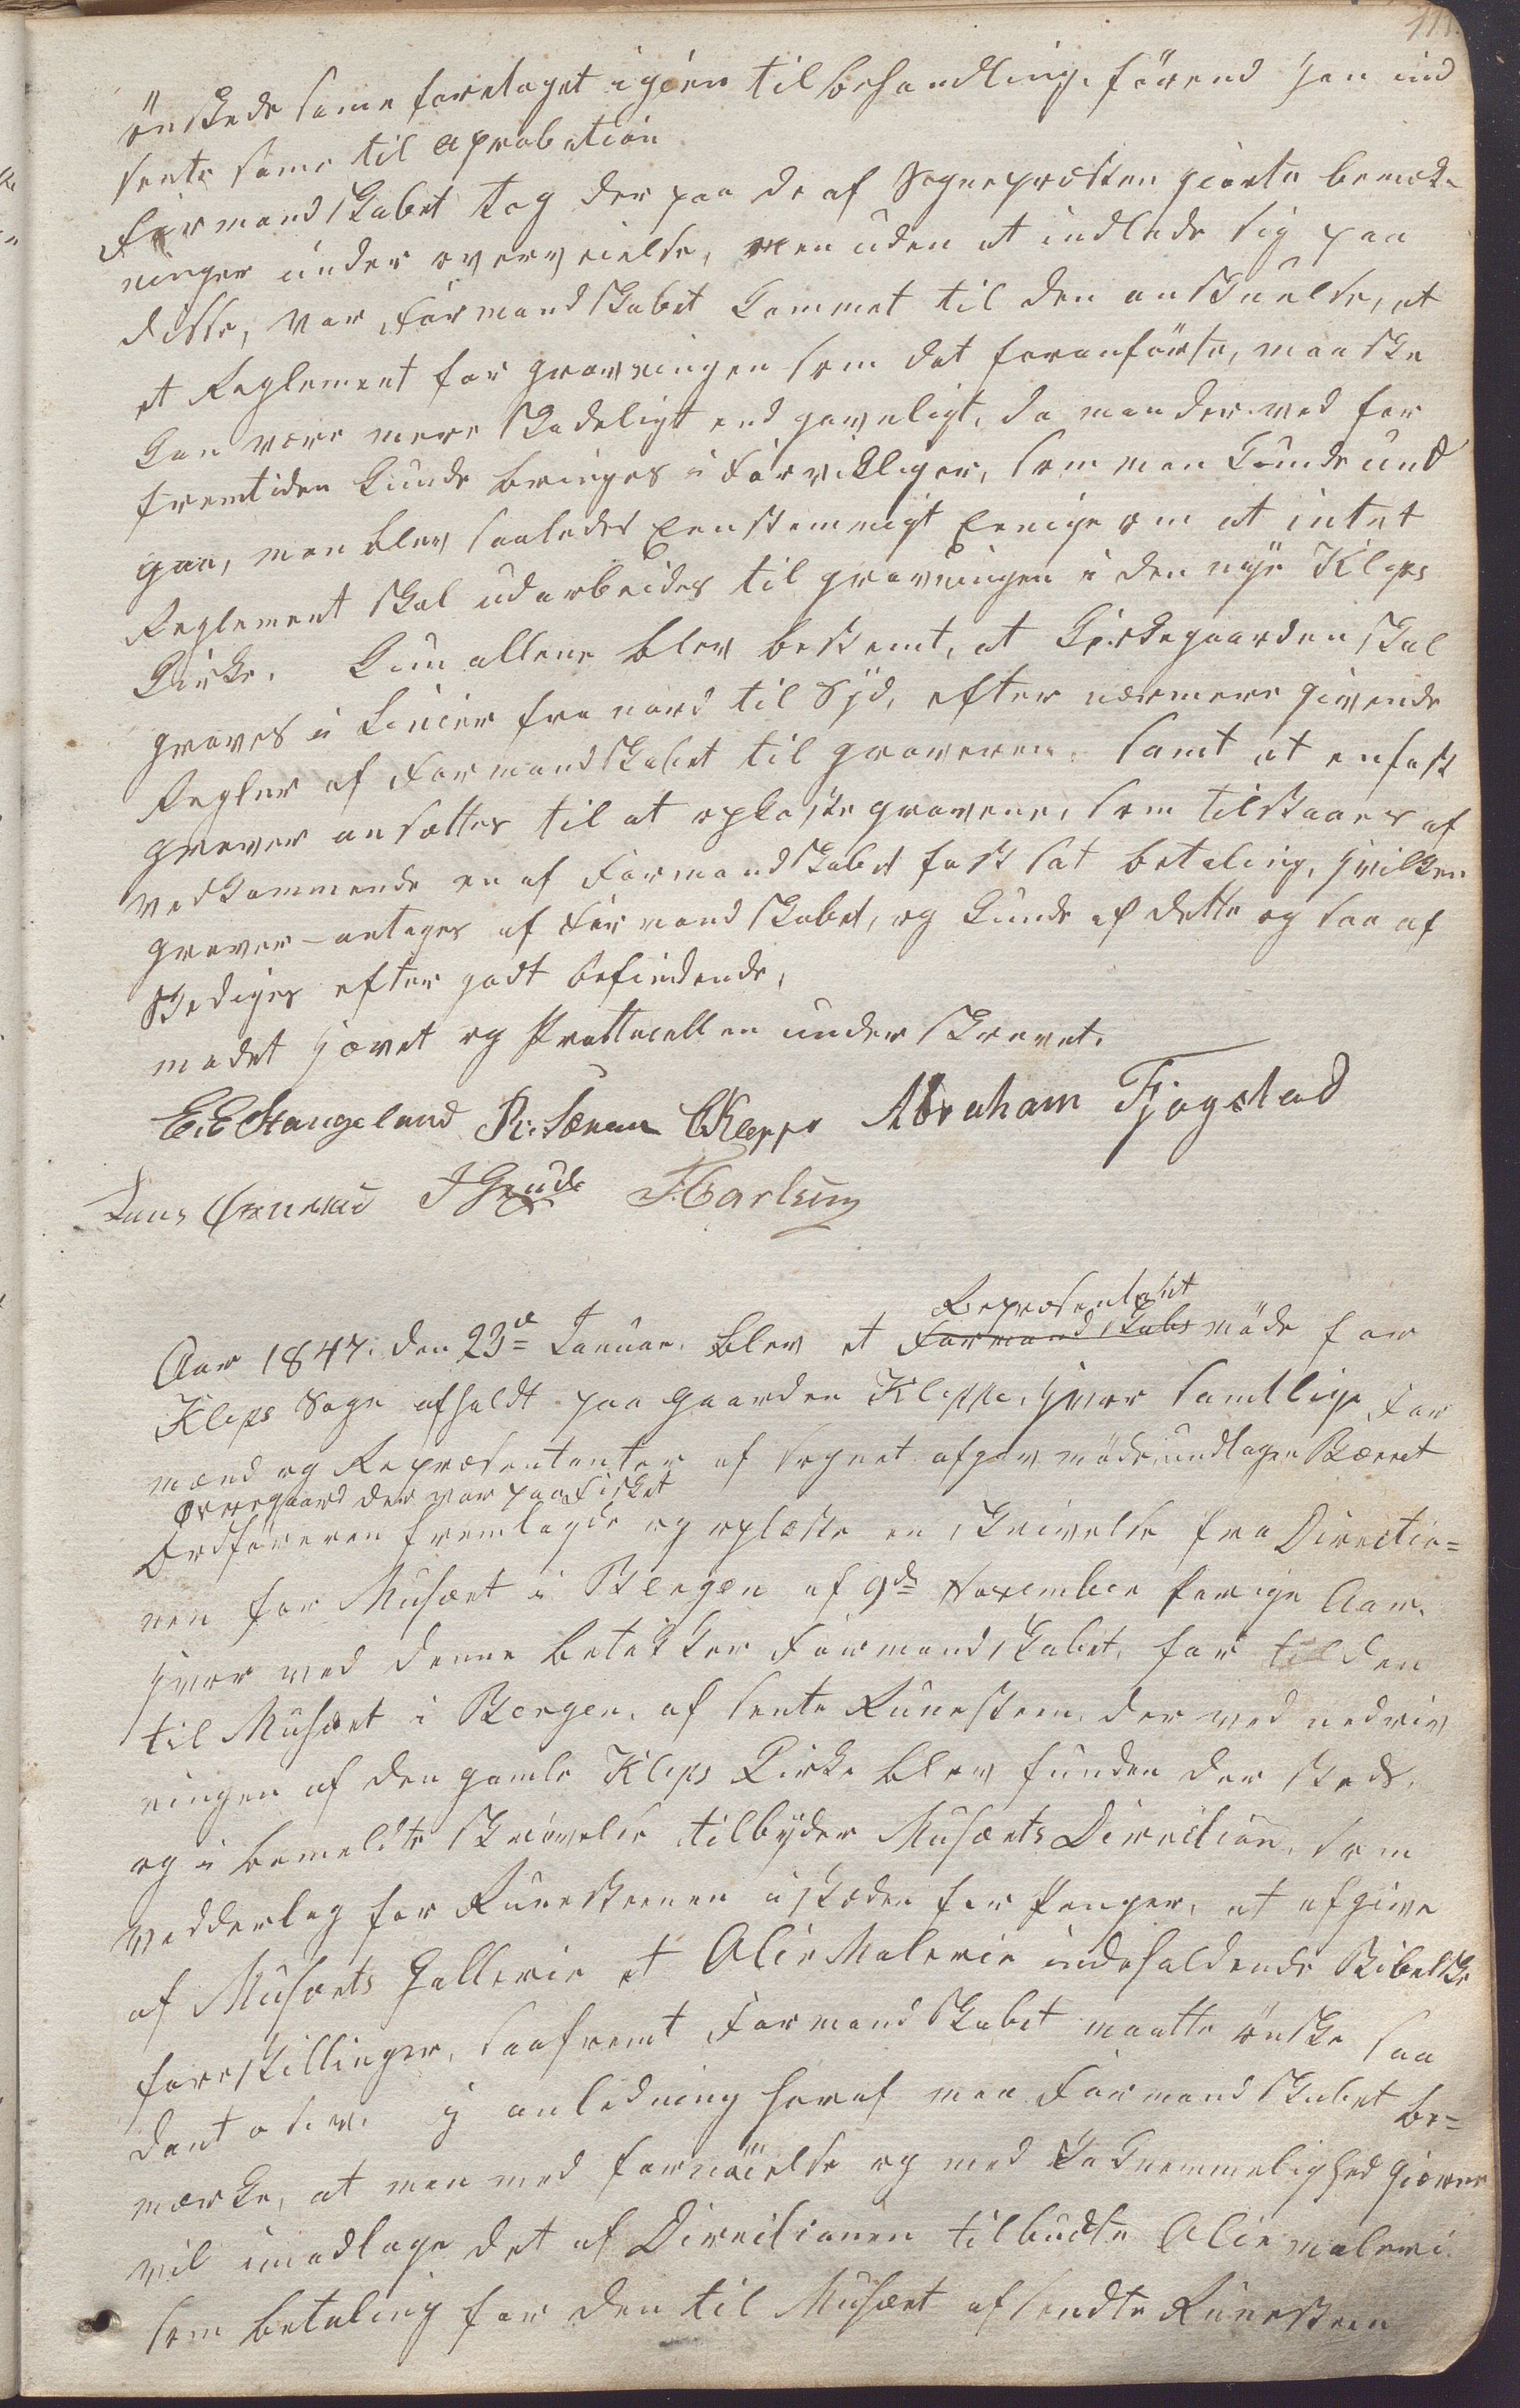 111.
ønskede samme foretaget igien til behandling, förend han ind
sente samme til aprobation
Formandskabet tog der paa de af Sognepræsten giorte bemærk-
ninger under overveielse, men uden at indlade sig paa
disse, var Formandskabet kommet til den anskuelse, at
et Reglement for gravningen som det foranförte, maaske
kan være mere skadeligt end gavnligt, da man derved for
fremtiden kunde bringes i Forvikliger, som man kunde und
gaa, man blev saaledes Eenstemmigt Eenige om at intet
Reglement skal udarbeides til gravningen i den nye Kleps
Kirke. Kun allene blev bestemt, at Kirkegaarden skal
graves i Linier fra nord til Syd, efter nærmere givende
Regler af Formandskabet til graveren, samt at en fast
graver ansættes til at opkaste gravene, som tilstaaes af
vedkommende en af Formandskabet fastsat betaling, hvilken
graver antages af Formandskabet, og kunde af dette og saa af
skediges efter godt befindende,
mødet hævet og Prottocollen underskrevet.
E. E Stangeland R: Særem CKleppe Abraham Fjogstad
Lars J Grude T Carlsen
Repræsentant
Aar 1847. den 23de Januar. blev et Formandskabs möde for
Kleps Sogn afholdt paa gaarden Kleppe, hvor samtlige For
mænd og Repræsentanter af sognet afgav möde, undtagen Bærret
Øvregaard der var paa Fisket
Ordföreren fremlagde og oplæste en skrivelse fra Directio=
nen for Musæet i Bergen af 9de November forige Aar.
hvor ved denne betakker Formandskabet, for tilden
til Musæet i Bergen, af sente Runesteen, der ved nedriv
ningen af den gamle Kleps Kirke blev funden der steds,
og i bemeldte skrivelse tilbyder Musæets Direction, som
vedderlag for Runesteenen istæden for Penger, at afgive
af Musæets Gallerie et Olie Malerie indeholdende Bibelske
forestillinger, saafremt Formandskabet maatte ønske saa
dant o. s. v. I anledning heraf maa Formandskabet be=
mærke, at man med fornöielse og med Taknemmelighed gierne
vil imodtage det af Directionen tilbudte Olie maleri
som betaling for den til Musæet afsendte Runesteen